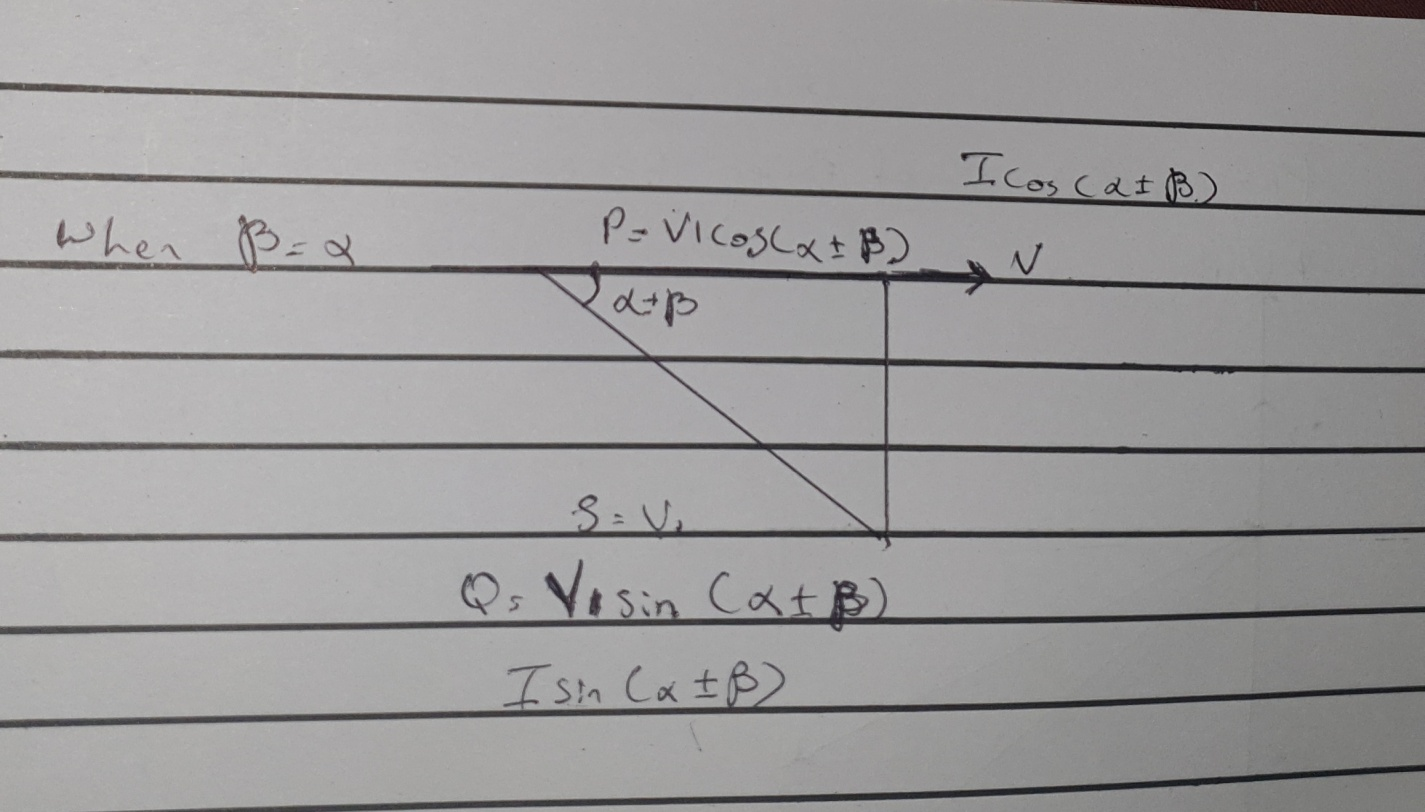 I cos (α ± β)
When β = α
P = VI cos(α ± β)
V
α ± β
S = VI
Q = VI sin (α ± β)
I sin (α ± β)